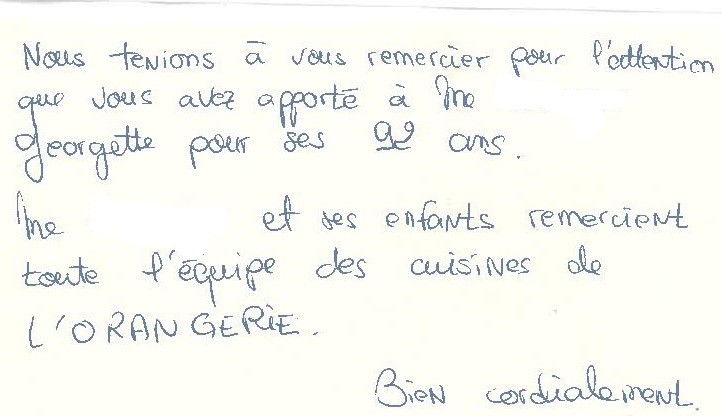 Nous tenions à vous remercier pour l'attention
que vous avez apporté à Me
Georgette pour ses 92 ans.
Me et ses enfants remercient
toute l'équipe des cuisines de
L'ORANGERIE.
Bien cordialement.